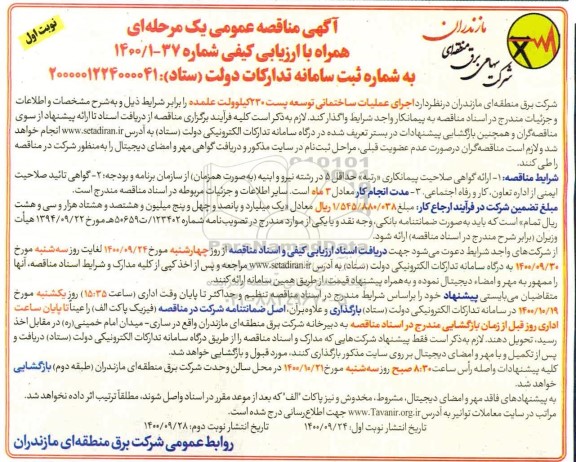 نوبت اول
آگهی مناقصه عمومی یک مرحله‌ای
همراه با ارزیابی کیفی شماره ۳۷-۱۴۰۰/۱
به شماره ثبت سامانه تدارکات دولت (ستاد): ۲۰۰۰۰۰۱۲۲۴۰۰۰۰۴۱
مازندران
شرکت سهامی برق منطقه‌ای
شرکت برق منطقه‌ای مازندران درنظردارد اجرای عملیات ساختمانی توسعه پست ۲۳۰کیلوولت علمده را برابر شرایط ذیل و به‌شرح مشخصات و اطلاعات
و جزئیات مندرج در اسناد مناقصه به پیمانکار واجد شرایط واگذار کند. لازم به‌ذکر است کلیه فرآیند برگزاری مناقصه از دریافت اسناد تا ارائه پیشنهاد از سوی
مناقصه‌گران و همچنین بازگشایی پیشنهادات در بستر تعریف شده در درگاه سامانه تدارکات الکترونیکی دولت (ستاد) به آدرس www.setadiran.ir انجام خواهد
شد و لازم است مناقصه‌گران درصورت عدم عضویت قبلی، مراحل ثبت‌نام در سایت مذکور و دریافت گواهی مهر و امضای دیجیتال را به‌منظور شرکت در مناقصه
را طی کنند.
شرایط مناقصه: ۱- ارائه گواهی صلاحیت پیمانکاری «رتبه حداقل ۵ در رشته نیرو و ابنیه (به‌صورت همزمان) از سازمان برنامه و بودجه؛ ۲- گواهی تائید صلاحیت
ایمنی از اداره تعاون، کار و رفاه اجتماعی. ۳- مدت انجام کار معادل ۳ ماه است. سایر اطلاعات و جزئیات مربوطه در اسناد مناقصه مندرج است.
مبلغ تضمین شرکت در فرآیند ارجاع کار: مبلغ ۱/۵۴۵/۸۸۰/۰۳۸ ریال معادل «یک میلیارد و پانصد و چهل و پنج میلیون و هشتصد و هشتاد هزار و سی و هشت
ریال تمام» است که باید به‌صورت ضمانتنامه بانکی، وجه نقد و یا یکی از موارد مندرج در تصویب‌نامه شماره ۱۲۳۴۰۲/ت۵۰۶۵۹هـ مورخ ۱۳۹۴/۰۹/۲۲ هیأت
وزیران (برابر شرح مندرج در اسناد مناقصه) ارائه شود.
از شرکت‌های واجد شرایط دعوت می‌شود جهت دریافت اسناد ارزیابی کیفی و اسناد مناقصه از روز چهارشنبه مورخ ۱۴۰۰/۰۹/۲۴ لغایت روز سه‌شنبه مورخ
۱۴۰۰/۰۹/۳۰ به درگاه سامانه تدارکات الکترونیکی دولت (ستاد) به آدرس www.setadiran.ir مراجعه و پس از اخذ کپی از کلیه مدارک و شرایط اسناد مناقصه، آنها
را ممهور به مهر و امضاء دیجیتال نموده و به‌همراه پیشنهاد قیمت، از طریق همین سامانه ارائه کنند.
متقاضیان می‌بایستی پیشنهاد خود را براساس شرایط مندرج در اسناد مناقصه تنظیم و حداکثر تا پایان وقت اداری (ساعت ۱۵:۳۵) روز یکشنبه مورخ
۱۴۰۰/۱۰/۱۹ در سامانه تدارکات الکترونیکی دولت (ستاد) بارگذاری و علاوه‌برآن، اصل ضمانتنامه شرکت در مناقصه (فیزیک پاکت الف) را عیناً تا پایان ساعت
اداری روز قبل از زمان بازگشایی مندرج در اسناد مناقصه به دبیرخانه شرکت برق منطقه‌ای مازندران واقع در ساری- میدان امام خمینی(ره) در مقابل اخذ
رسید، تحویل دهند. لازم به‌ذکر است فقط پیشنهاد شرکت‌هایی که مدارک و اسناد مناقصه را از طریق درگاه سامانه تدارکات الکترونیکی دولت (ستاد) دریافت و
پس از تکمیل و با مهر و امضای دیجیتال بر روی سایت مذکور بارگذاری کنند، مورد قبول و بازگشایی خواهد شد.
کلیه پیشنهادات واصله رأس ساعت ۸:۳۰ صبح روز سه‌شنبه مورخ ۱۴۰۰/۱۰/۲۱ در محل سالن وحدت شرکت برق منطقه‌ای مازندران (طبقه دوم) بازگشایی
خواهد شد.
به پیشنهادهای فاقد مهر و امضای دیجیتال، مشروط، مخدوش و نیز پاکات "الف" که بعد از موعد مقرر در اسناد واصل شوند، مطلقاً ترتیب اثر داده نخواهد شد.
مراتب در سایت معاملات توانیر به آدرس www.Tavanir.org.ir جهت اطلاع‌رسانی درج شده است.
تاریخ انتشار نوبت اول: ۱۴۰۰/۰۹/۲۴ تاریخ انتشار نوبت دوم: ۱۴۰۰/۰۹/۲۸
روابط عمومی شرکت برق منطقه‌ای مازندران